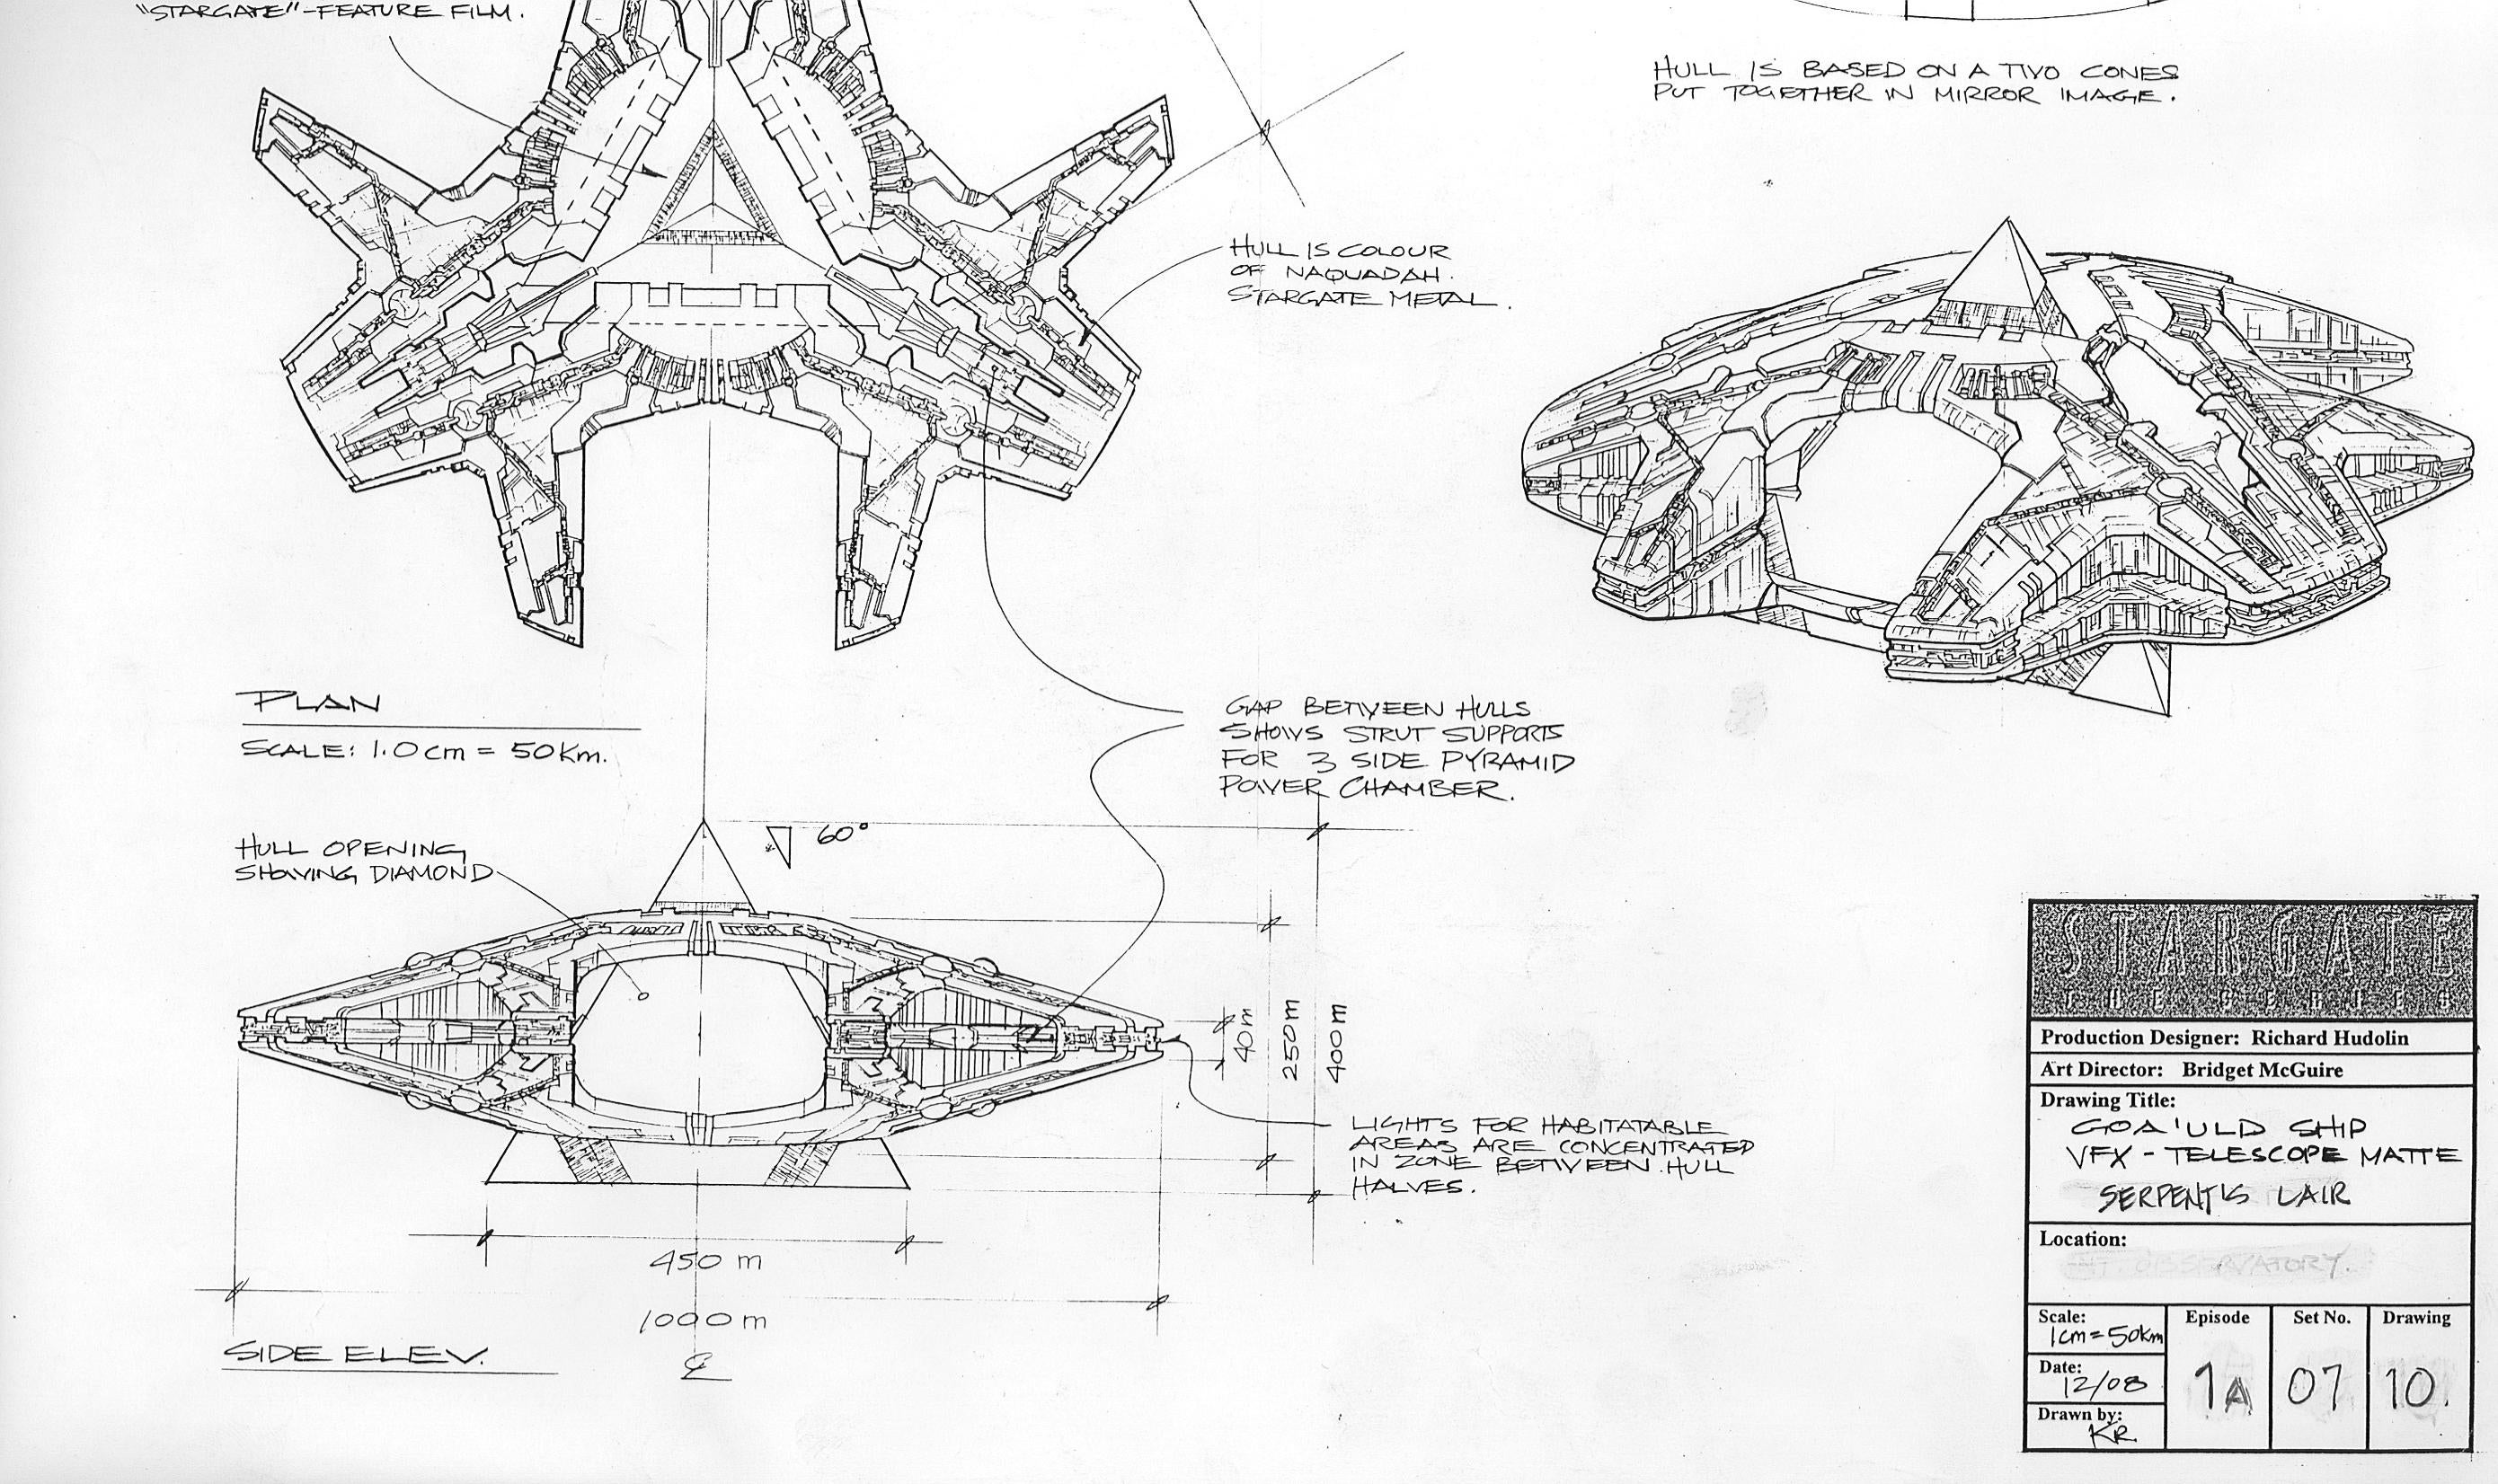 "STARGATE"-FEATURE FILM.
HULL IS BASED ON A TWO CONES
PUT TOGETHER IN MIRROR IMAGE.
HULL IS COLOUR
OF NAQUADAH.
STARGATE METAL.
PLAN
SCALE: 1.0cm = 50Km.
GAP BETWEEN HULLS
SHOWS STRUT SUPPORTS
FOR 3 SIDE PYRAMID
POWER CHAMBER.
HULL OPENING
SHOWING DIAMOND
60°
40m
250m
400m
LIGHTS FOR HABITATABLE
AREAS ARE CONCENTRATED
IN ZONE BETWEEN HULL
HALVES.
450 m
1000 m
SIDE ELEV.
℄
STARGATE
THE SERIES
Production Designer: Richard Hudolin
Art Director: Bridget McGuire
Drawing Title:
GOA'ULD SHIP
VFX - TELESCOPE MATTE
SERPENTIS LAIR
Location:
INT. OBSERVATORY.
Scale:
1cm=50km
Episode
Set No.
Drawing
Date:
12/08
1A
07
10.
Drawn by:
KR.